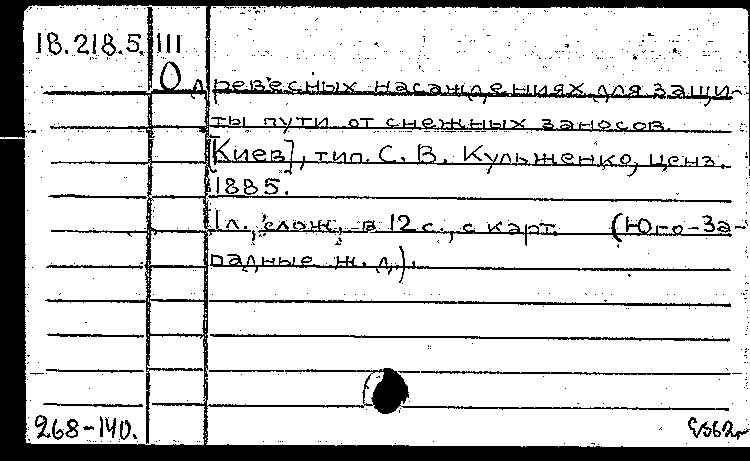 18.218.5.111
О древесных насаждениях для защи-
ты пути от снежных заносов.
[Киев], тип. С. В. Кульженко, ценз.
1885.
1 л., слож. в 12 с., с карт. (Юго-За-
падные ж. д.).
268-140.